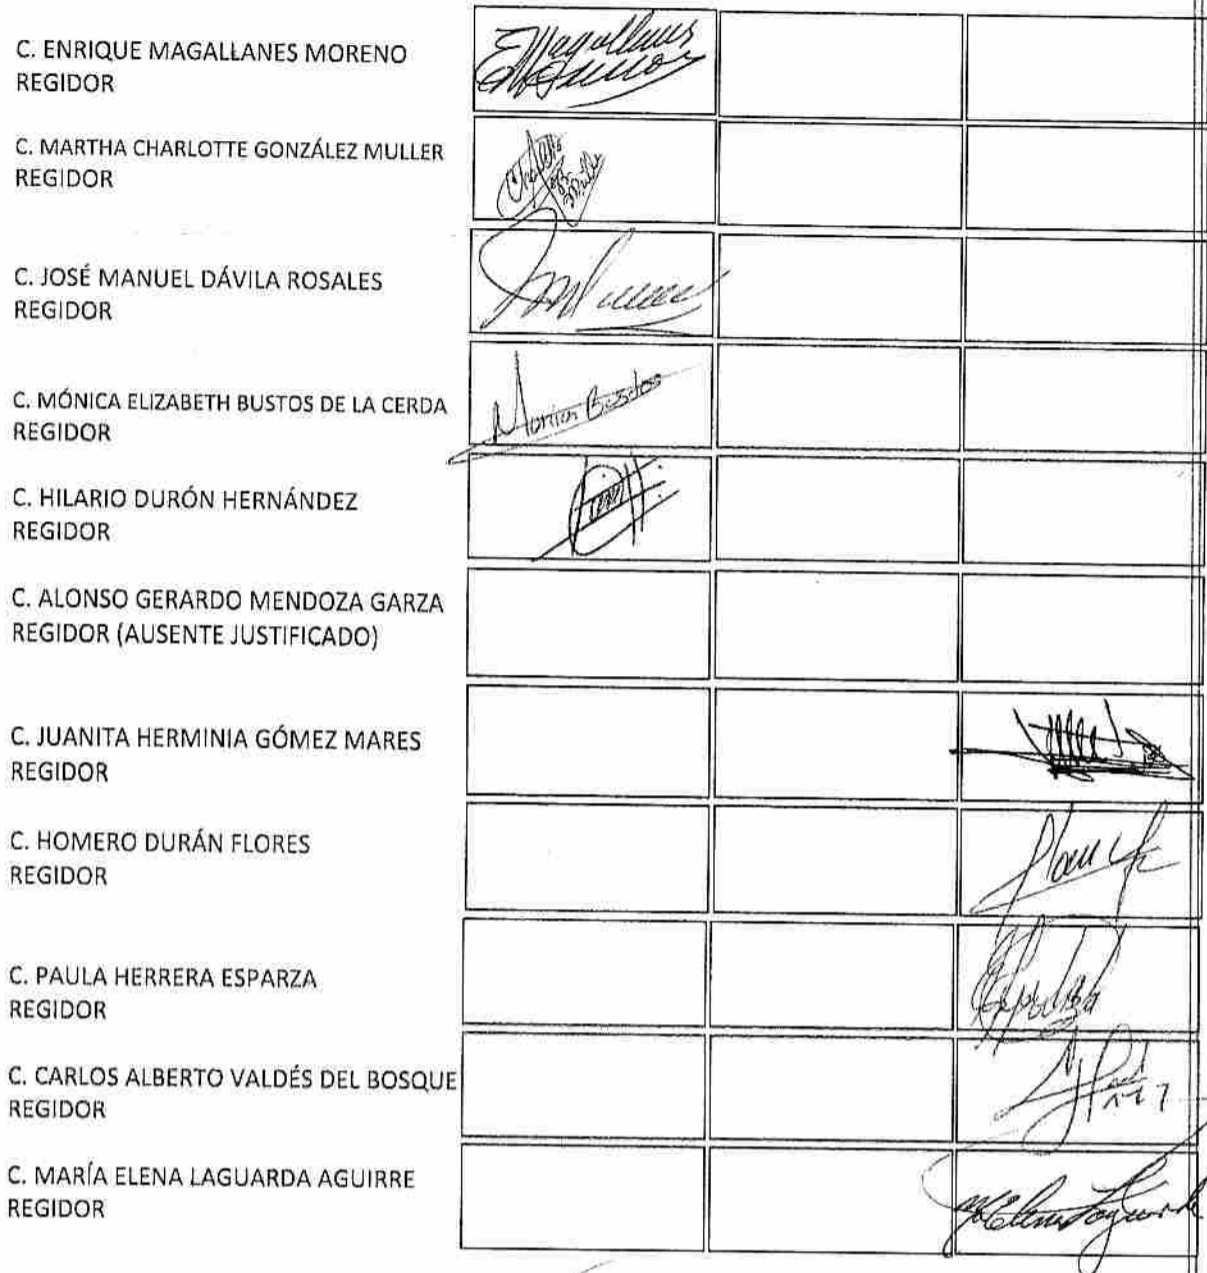 C. ENRIQUE MAGALLANES MORENO
REGIDOR
EMagallanes
Moreno
C. MARTHA CHARLOTTE GONZÁLEZ MULLER
REGIDOR
C. JOSÉ MANUEL DÁVILA ROSALES
REGIDOR
C. MÓNICA ELIZABETH BUSTOS DE LA CERDA
REGIDOR
Monica Bustos
C. HILARIO DURÓN HERNÁNDEZ
REGIDOR
C. ALONSO GERARDO MENDOZA GARZA
REGIDOR (AUSENTE JUSTIFICADO)
C. JUANITA HERMINIA GÓMEZ MARES
REGIDOR
C. HOMERO DURÁN FLORES
REGIDOR
C. PAULA HERRERA ESPARZA
REGIDOR
C. CARLOS ALBERTO VALDÉS DEL BOSQUE
REGIDOR
C. MARÍA ELENA LAGUARDA AGUIRRE
REGIDOR
Ma Elena Laguarda